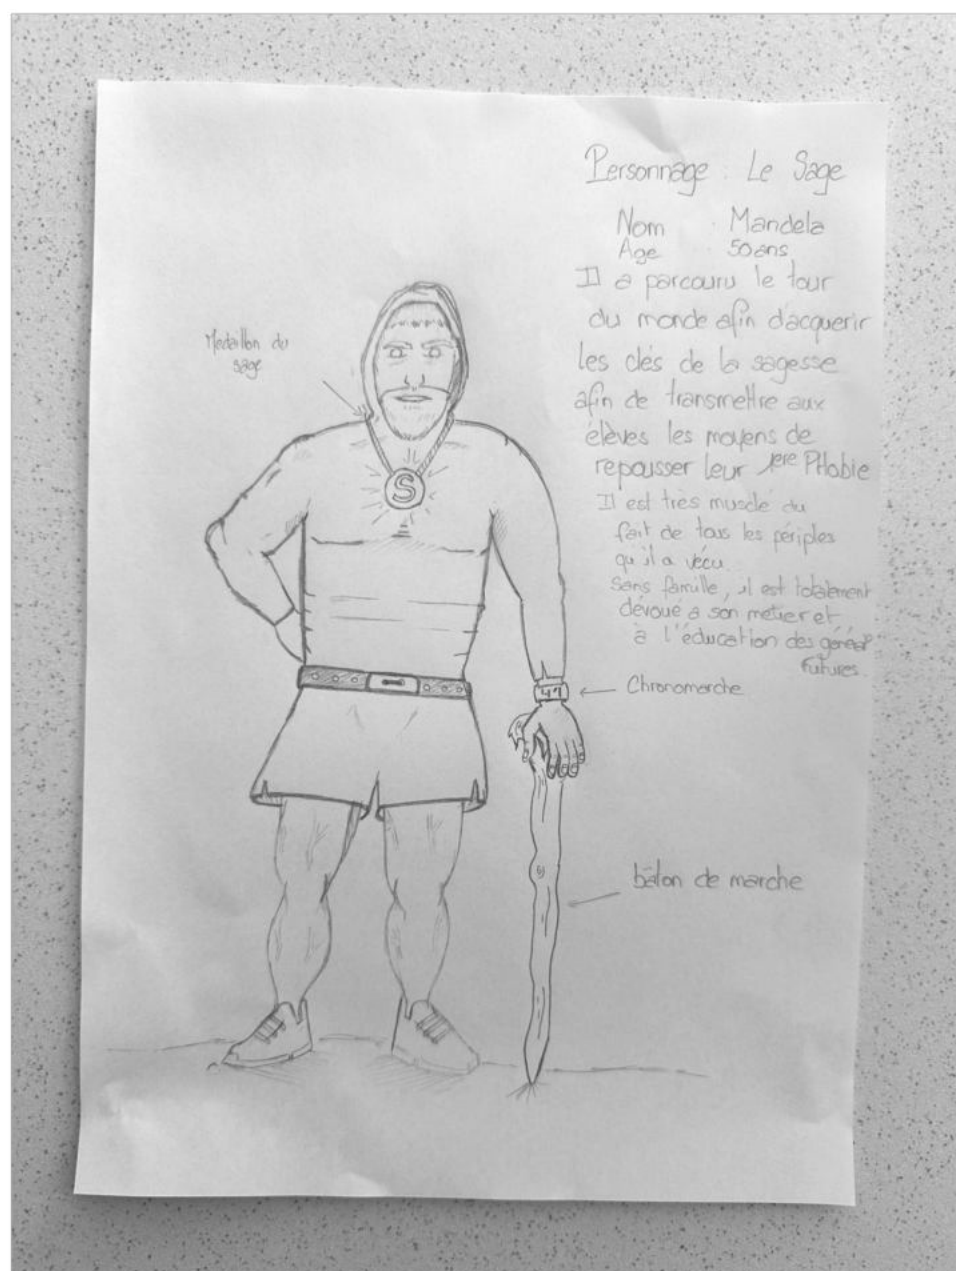 Personnage : Le Sage
Nom : Mandela
Age : 50 ans
Il a parcouru le tour
du monde afin d'acquerir
les clés de la sagesse
afin de transmettre aux
élèves les moyens de
repousser leur 1ere PHobie
Il est très musclé du
fait de tous les périples
qu'il a vécu.
Sans famille, il est totalement
dévoué a son metier et
à l'éducation des
futures
Medaillon du
sage
S
Chronomarche
47
bâton de marche